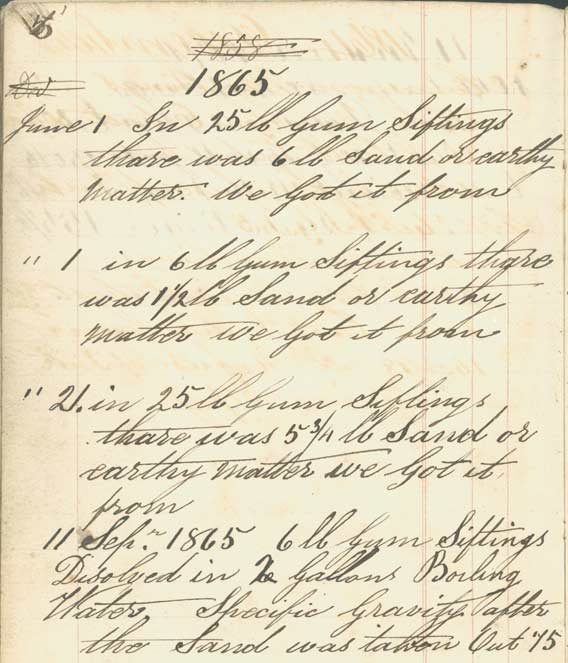 1858
1865
June 1 In 25 lb Gum Siftings
thare was 6 lb Sand or earthy
matter. We Got it from
" 1 in 6 lb Gum Siftings thare
was 1 1/2 lb Sand or earthy
matter we Got it from
" 21. in 25 lb Gum Siftings
thare was 5 3/4 lb Sand or
earthy matter we Got it
from
11 Sepr. 1865 6 lb Gum Siftings
Disolved in 2 Gallons Boiling
Water Specific Gravity after
the Sand was taken Out 75